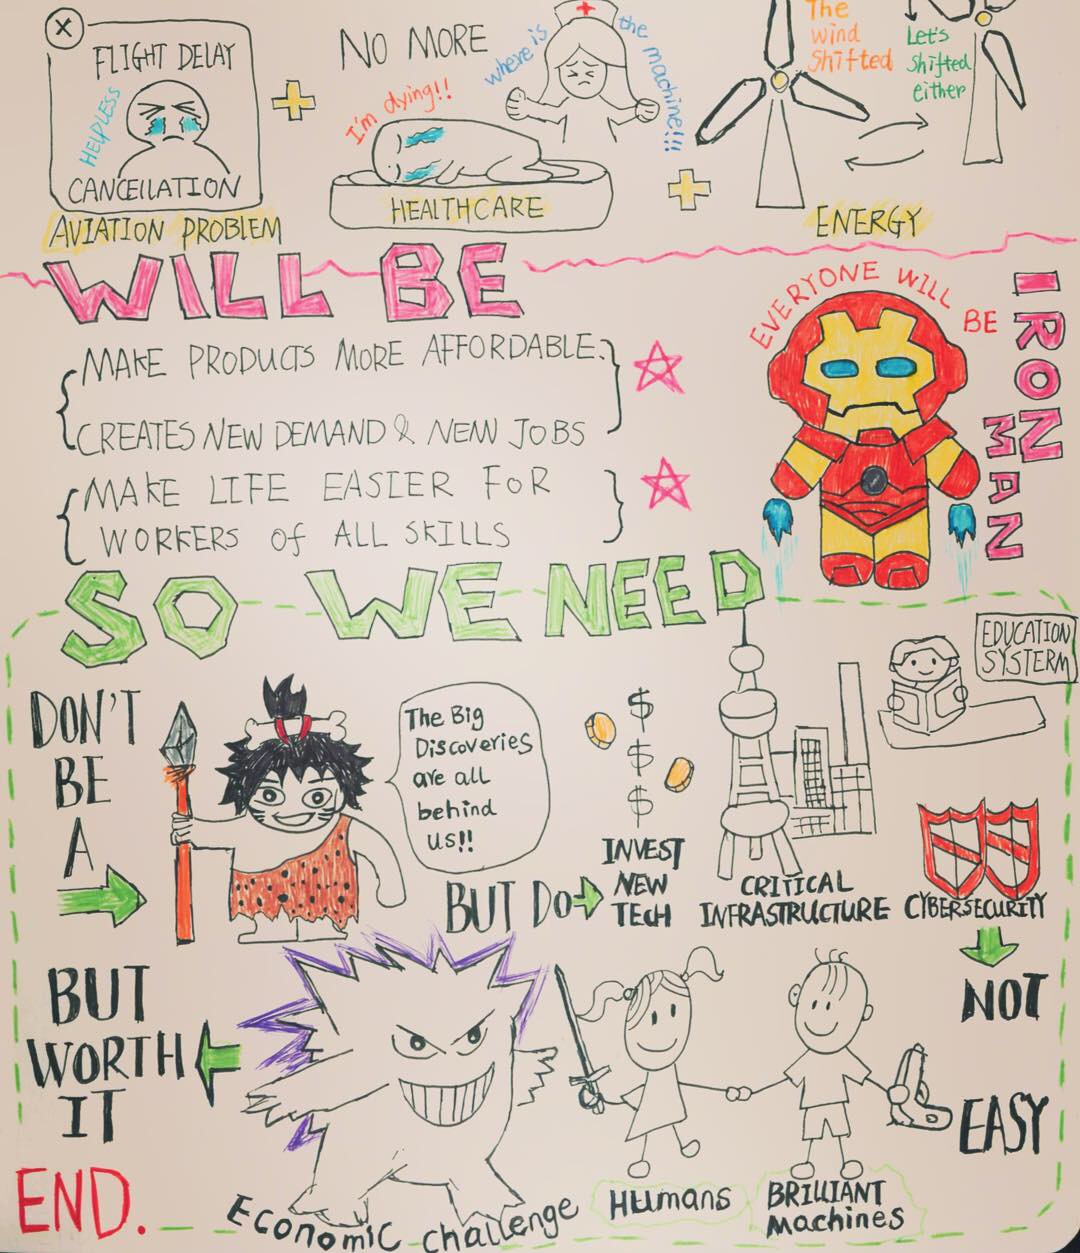 FLIGHT DELAY
HELPLESS
CANCELLATION
AVIATION PROBLEM
NO MORE
I'm dying!!
where is
the machine!!!
HEALTHCARE
The
wind
Shifted
Let's
Shifted
either
ENERGY
WILL BE
MAKE PRODUCTS MORE AFFORDABLE
CREATES NEW DEMAND & NEW JOBS
MAKE LIFE EASIER FOR
WORKERS of ALL SKILLS
EVERYONE WILL BE
IRON
MAN
SO WE NEED
DON'T
BE
A
The Big
Discoveries
are all
behind
us!!
BUT DO
$
$
$
INVEST
NEW
TECH
CRITICAL
INFRASTRUCTURE
EDUCATION
SYSTERM
CYBERSECURITY
NOT
EASY
HUmans
BRILLIANT
Machines
Economic challenge
BUT
WORTH
IT
END.